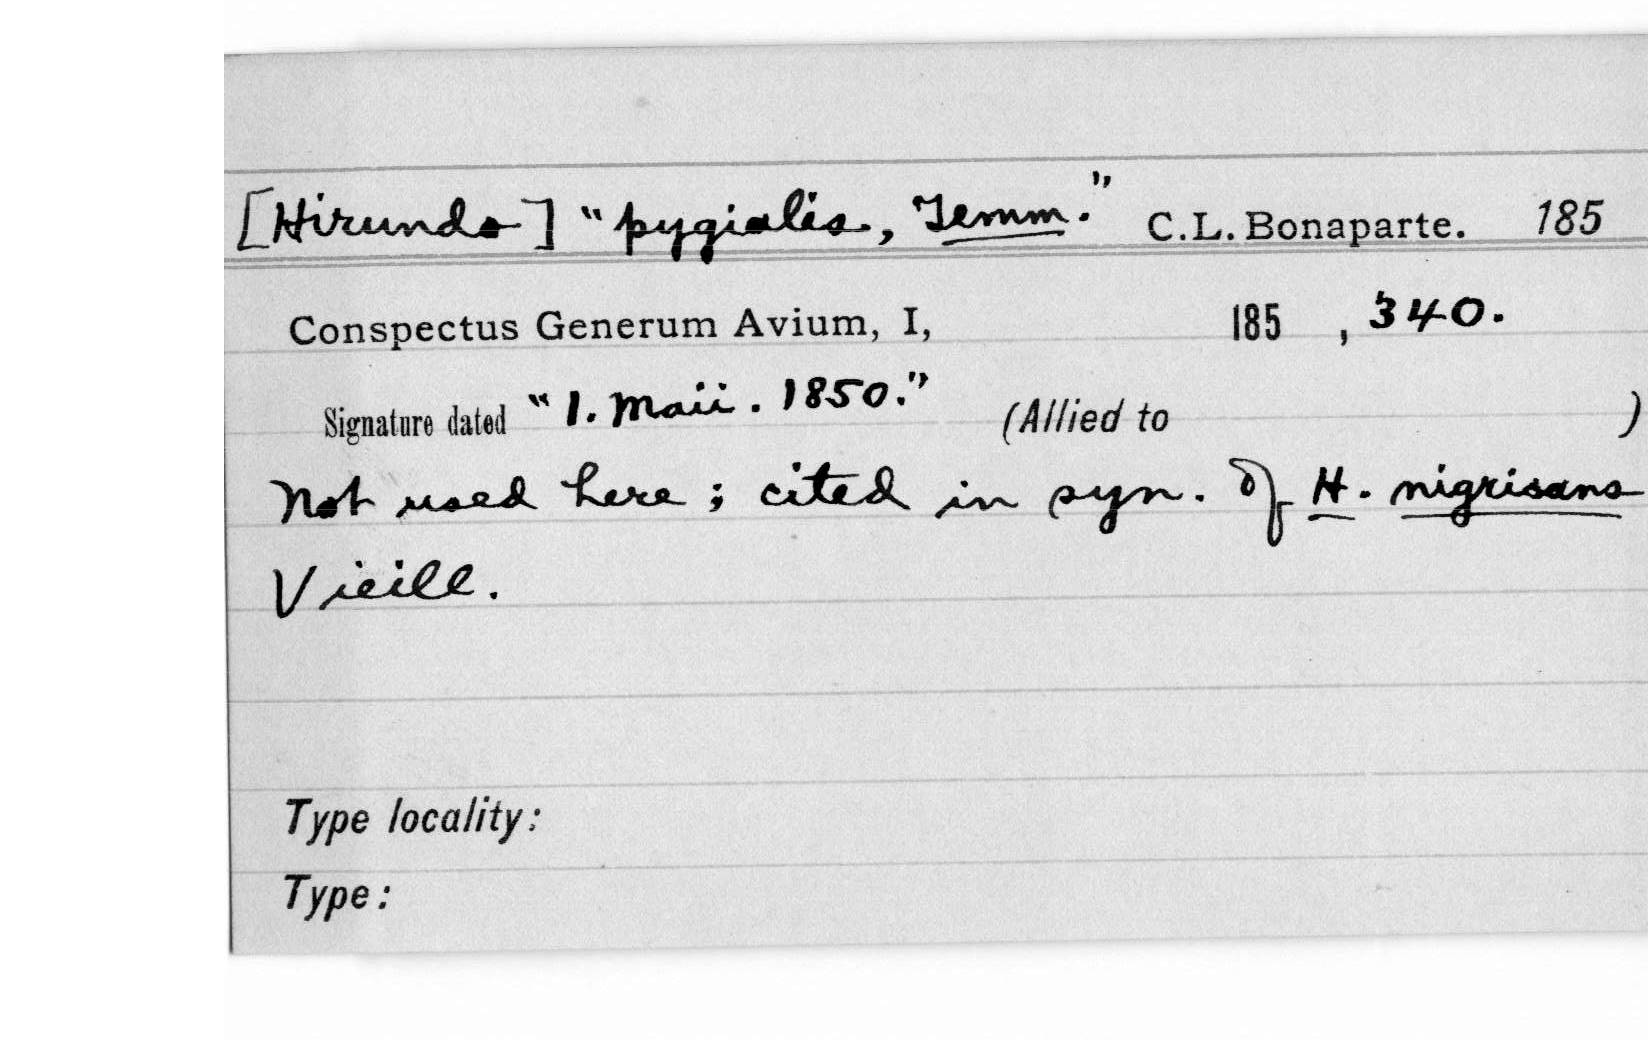 [Hirundo] "pygialis, Temm." C.L. Bonaparte. 185
Conspectus Generum Avium, I, 185 , 340.
Signature dated "1. Maii. 1850." (Allied to )
Not used here; cited in syn. of H. nigrisans
Vieill.
Type locality:
Type: